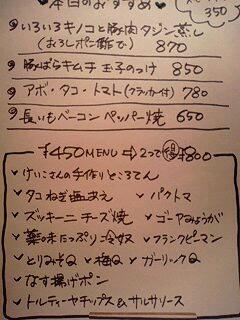 本日のおすすめ
350
いろいろキノコと豚肉タジン蒸し
(おろしポン酢で) 870
豚ばらキムチ 玉子のっけ 850
アボ・タコ・トマト(クラッカー付) 780
長いもベーコン ペッパー焼 650
¥450MENU ⇒ 2つで ¥800
✓ けいこさんの手作りところてん
✓ タコねぎ塩あえ ✓ パクトマ
✓ ズッキーニ チーズ焼 ✓ ゴーヤみょうが
✓ 薬味たっぷり冷奴 ✓ フランクピーマン
✓ とりみそQ ✓ 梅Q ✓ ガーリックQ
✓ なす揚げポン
✓ トルティーヤチップス&サルサソース